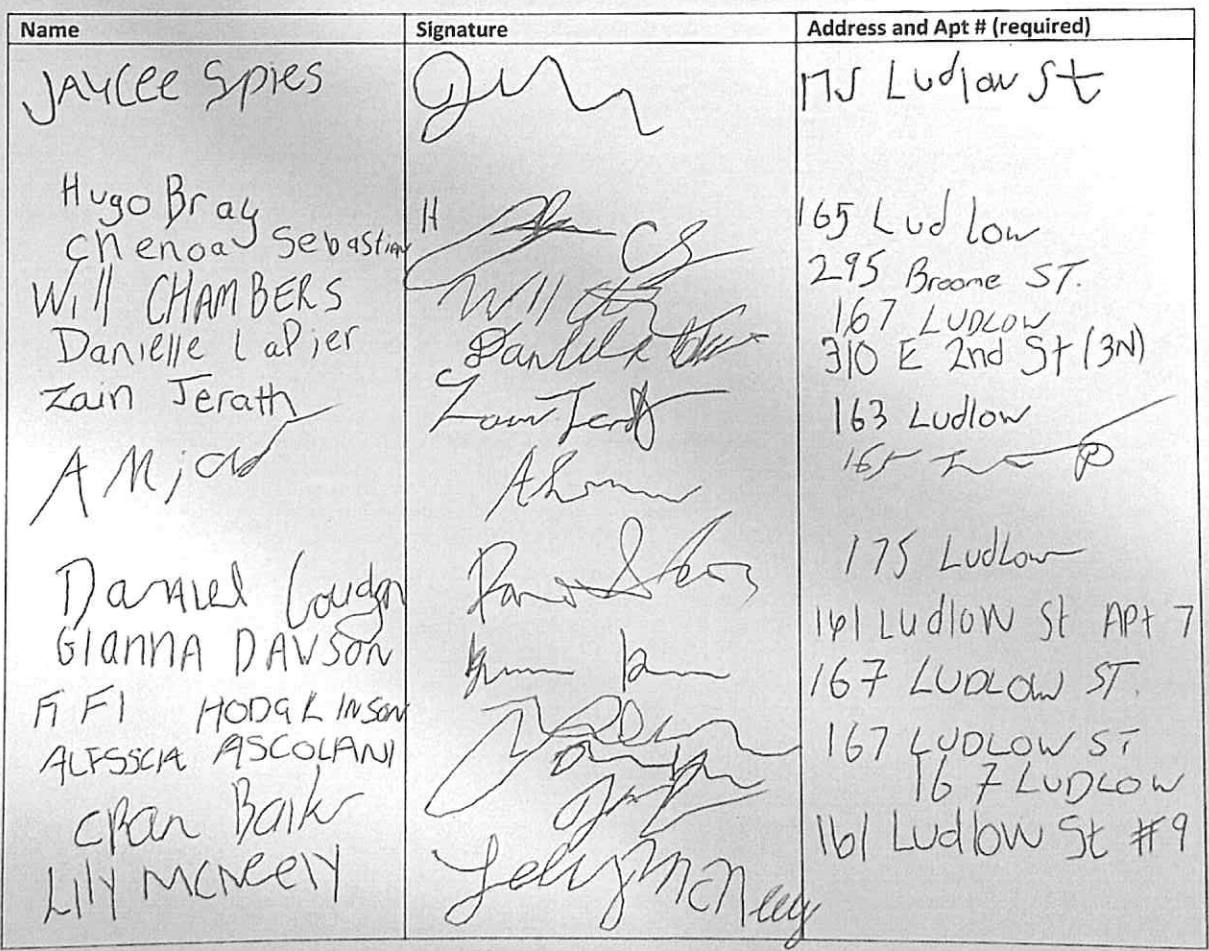 Name Signature Address and Apt # (required)
JAYCEE Spies 175 Ludlow St
Hugo Bray H 165 Ludlow
Chenoa Sebastian CS 295 Broome ST.
Will CHAMBERS Will 167 LUDLOW
Danielle LaPier Danielle 310 E 2nd St (3N)
Zain Jerath Zain Jerath 163 Ludlow
A Mjad 165
Daniel 175 Ludlow
GIANNA DAVSON 161 Ludlow St APt 7
FIFI HODGKINSON 167 LUDLOW ST.
ALESSCIA ASCOLANI 167 LUDLOW ST
167 LUDLOW
Lily McNeely Lily McNeely 161 Ludlow St #9